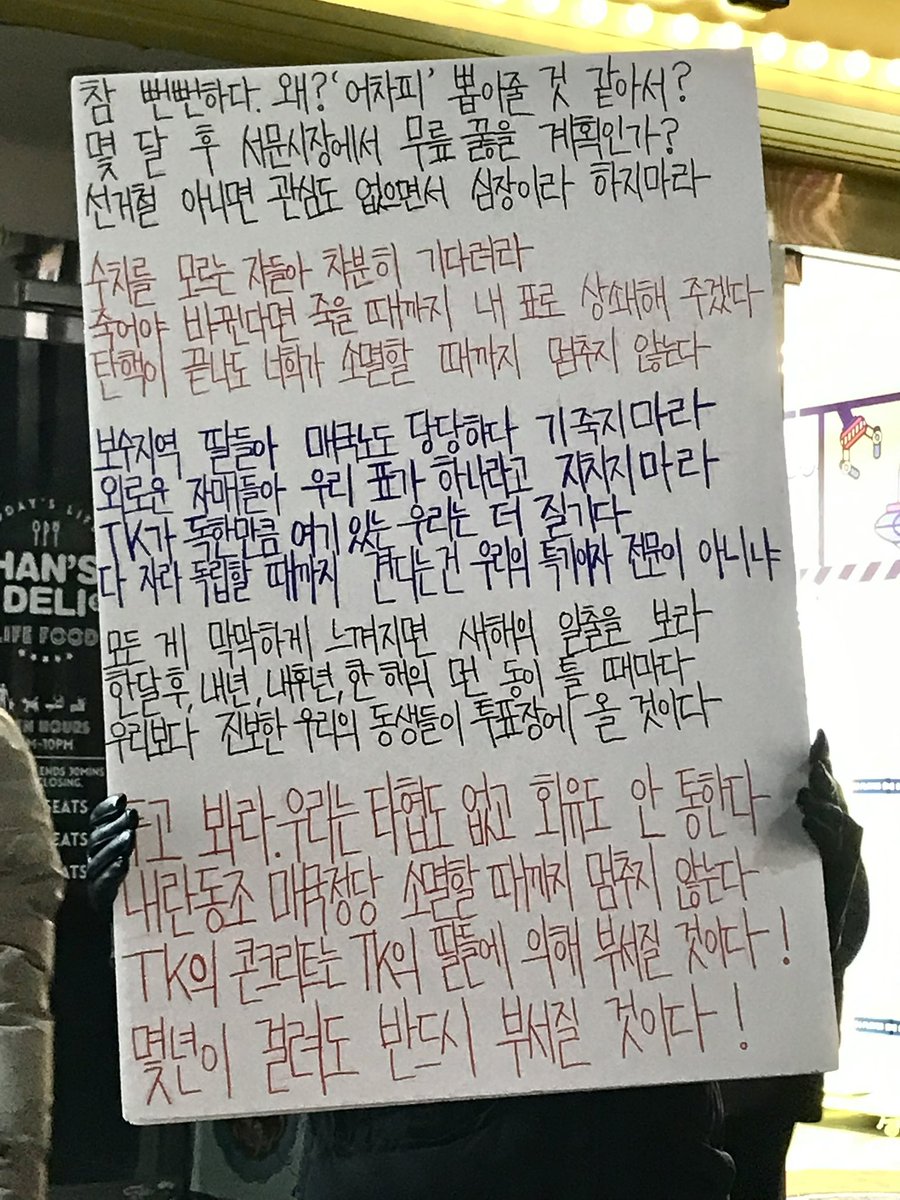 참 뻔뻔하다. 왜? '어차피' 뽑아줄 것 같아서?
몇 달 후 서문시장에서 무릎 꿇을 계획인가?
선거철 아니면 관심도 없으면서 심장이라 하지마라
수치를 모르는 자들아 차분히 기다려라
죽어야 바뀐다면 죽을 때까지 내 표로 상쇄해 주겠다
탄핵이 끝나도 너희가 소멸할 때까지 멈추지 않는다
보수지역 딸들아 매국노도 당당하다 기죽지마라
외로운 자매들아 우리 표가 하나라고 지치지마라
TK가 독한만큼 여기 있는 우리는 더 질기다
다 자라 독립할 때까지 견디는건 우리의 특기이자 전문이 아니냐
모든 게 막막하게 느껴지면 새해의 일출을 보라
한달 후, 내년, 내후년, 한 해의 먼 동이 틀 때마다
우리보다 진보한 우리의 동생들이 투표장에 올 것이다
고 봐라. 우리는 타협도 없고 회유도 안 통한다
내란동조 매국정당 소멸할 때까지 멈추지 않는다
TK의 콘크리트는 TK의 딸들에 의해 부서질 것이다!
몇년이 걸려도 반드시 부서질 것이다!
HAN'S
DELI
LIFE FOOD
HOURS
-10PM
ENDS 30MINS
CLOSING.
EATS